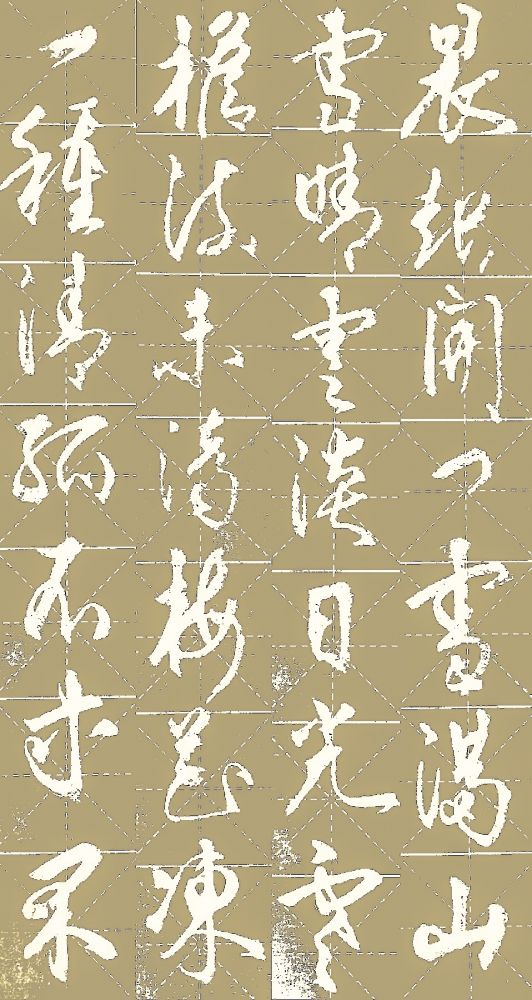 晨起開門雪滿山
雪晴雲淡日光寒
檐流未滴梅花凍
一種清孤不等閑